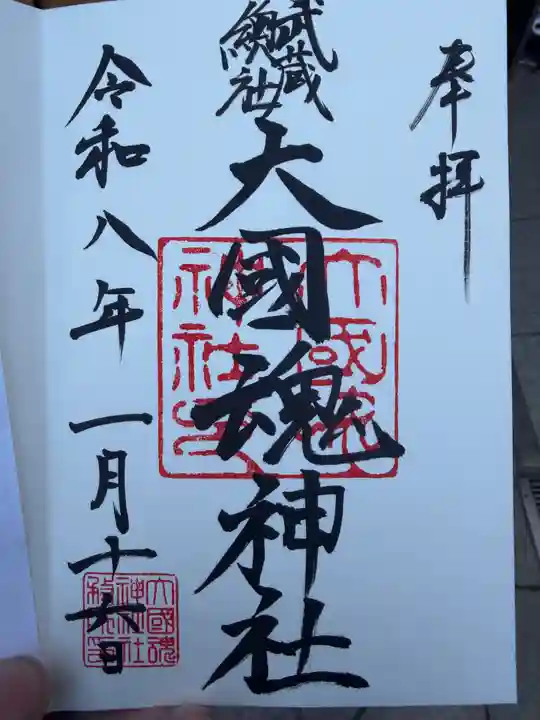 奉拝
武蔵
総社
大國魂神社
大國魂
神社印
令和八年一月十六日
大國魂
神社